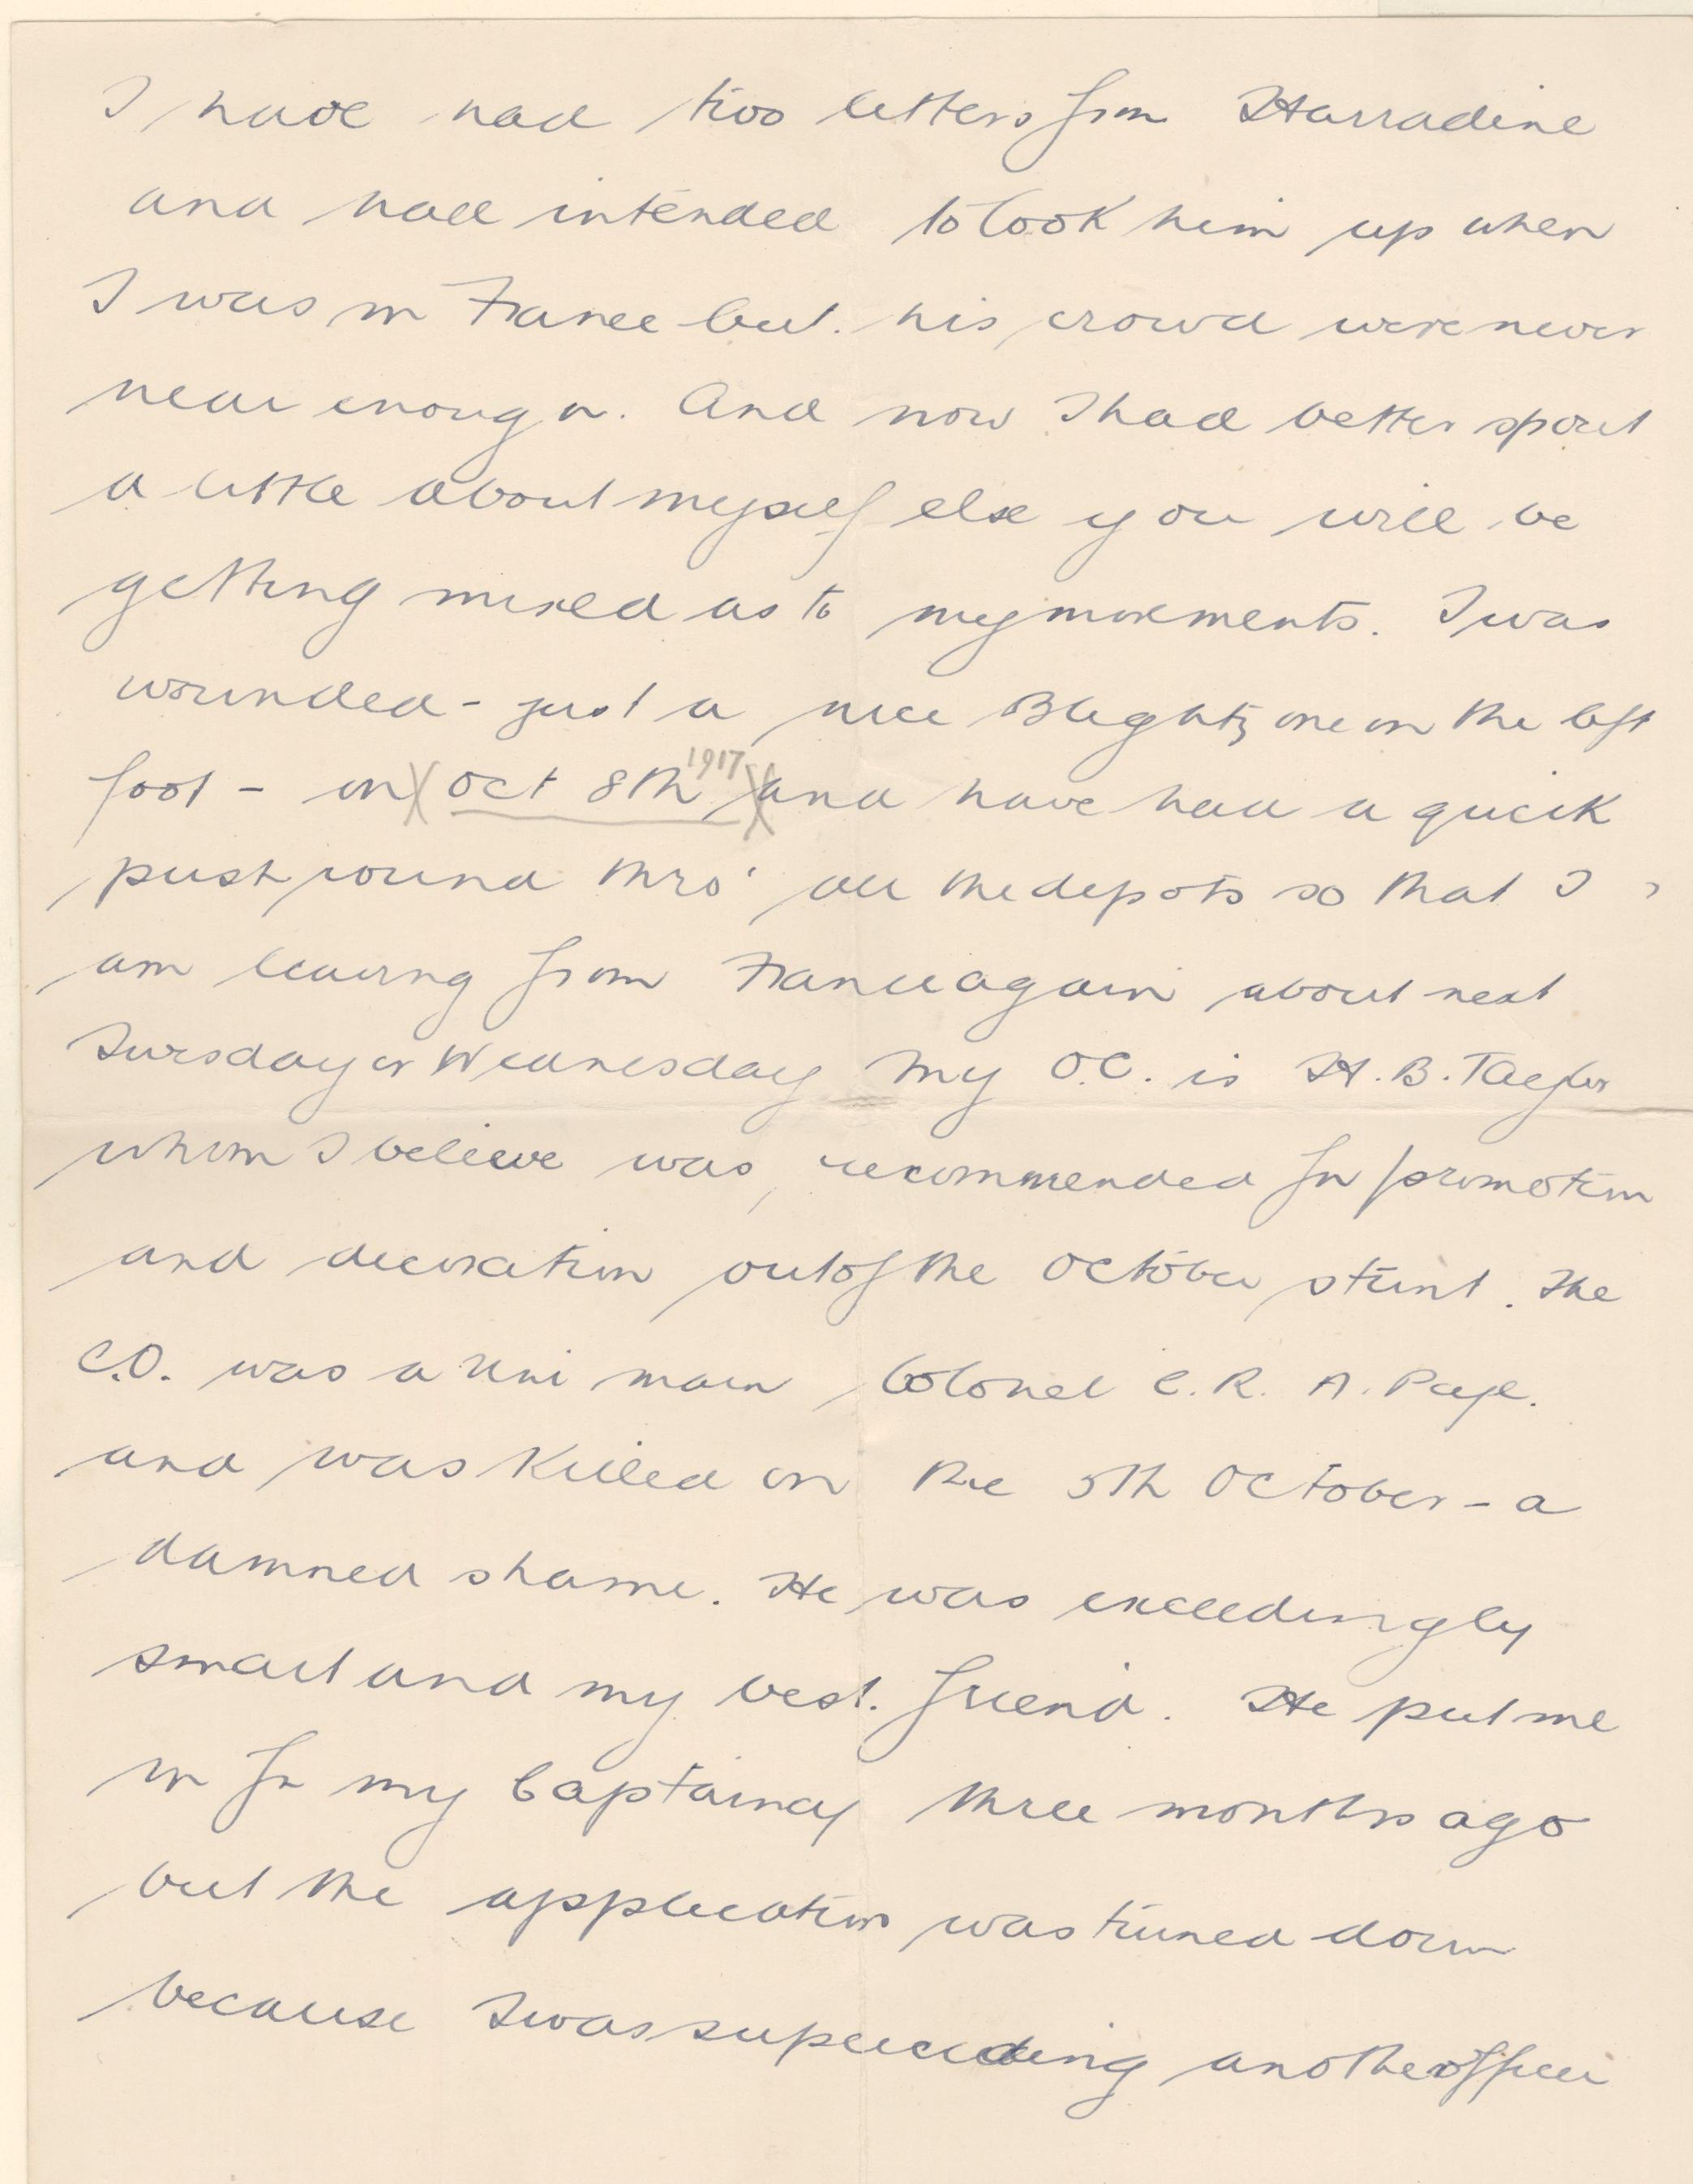 I have had two letters from Harradine
and had intended to look him up when
I was in France but his crowd were never
near enough. And now I had better spout
a little about myself else you will be
getting mixed as to my movements. I was
wounded - just a nice Blighty one in the left
foot - on (Oct 8th 1917) and have had a quick
push round thro' all the depots so that I
am leaving from France again about next
Tuesday or Wednesday My O.C. is H.B. Taylor
whom I believe was, recommended for promotion
and decoration out of the October stunt. The
C.O. was a Uni man Colonel C. R. A. Pye.
and was killed on the 5th October - a
damned shame. He was exceedingly
smart and my best friend. He put me
in for my Captaincy three months ago
but the application was turned down
because I was superceding another officer